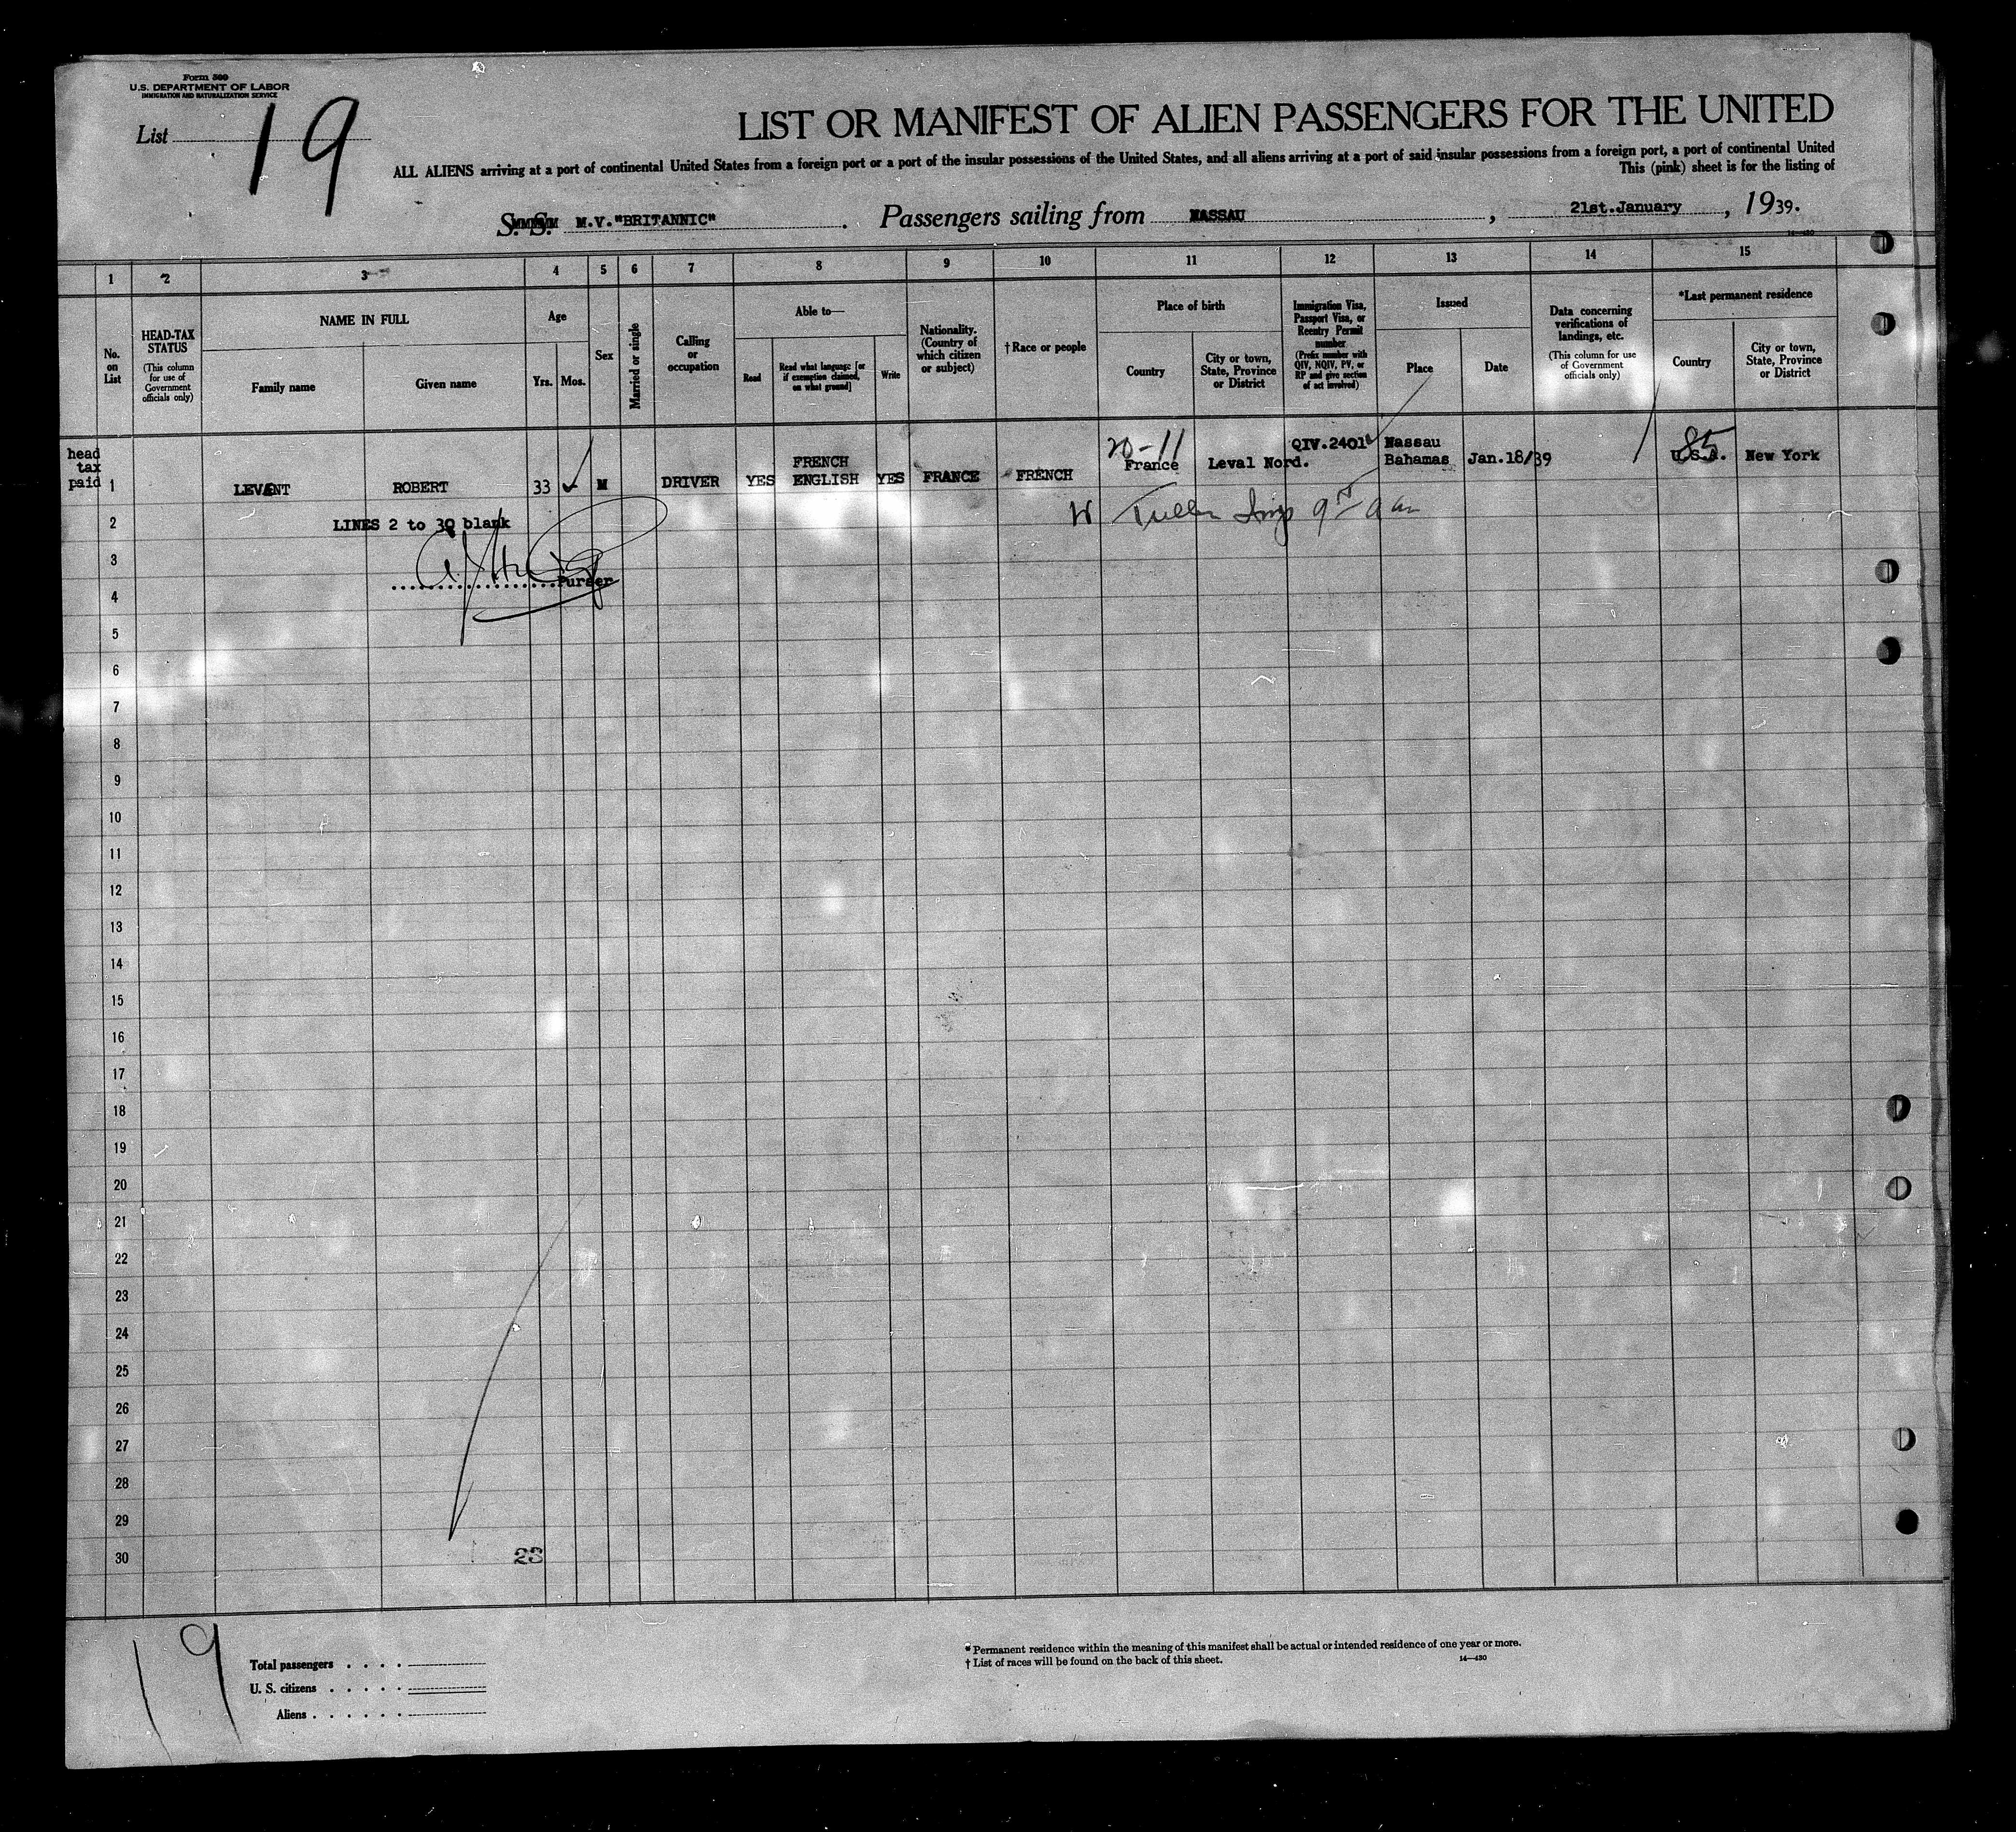 Form 500
U.S. DEPARTMENT OF LABOR
IMMIGRATION AND NATURALIZATION SERVICE
List 19
LIST OR MANIFEST OF ALIEN PASSENGERS FOR THE UNITED
ALL ALIENS arriving at a port of continental United States from a foreign port or a port of the insular possessions of the United States, and all aliens arriving at a port of said insular possessions from a foreign port, a port of continental United
This (pink) sheet is for the listing of
S. S. M.V."BRITANNIC". Passengers sailing from NASSAU, 21st.January, 1939.
14—430
1 2 3 4 5 6 7 8 9 10 11 12 13 14 15
No. on List
HEAD-TAX STATUS
(This column for use of Government officials only)
NAME IN FULL
Family name
Given name
Age
Yrs. Mos.
Sex
Married or single
Calling or occupation
Able to—
Read
Read what language [or if exemption claimed, on what ground]
Write
Nationality. (Country of which citizen or subject)
† Race or people
Place of birth
Country
City or town, State, Province or District
Immigration Visa, Passport Visa, or Reentry Permit number
(Prefix number with QIV, NQIV, PV, or RP and give section of act involved)
Issued
Place
Date
Data concerning verifications of landings, etc.
(This column for use of Government officials only)
*Last permanent residence
Country
City or town, State, Province or District
head tax paid
1 LEVENT ROBERT 33 M DRIVER YES FRENCH ENGLISH YES FRANCE FRENCH France Leval Nord. QIV.2401 Nassau Bahamas Jan.18/39 U.S.A. New York
20-11
85
2 LINES 2 to 30 blank
W
3
Purser
4
5
6
7
8
9
10
11
12
13
14
15
16
17
18
19
20
21
22
23
24
25
26
27
28
29
30
23
19
Total passengers . . . .
U. S. citizens . . . . .
Aliens . . . . . .
* Permanent residence within the meaning of this manifest shall be actual or intended residence of one year or more.
† List of races will be found on the back of this sheet.
14—430